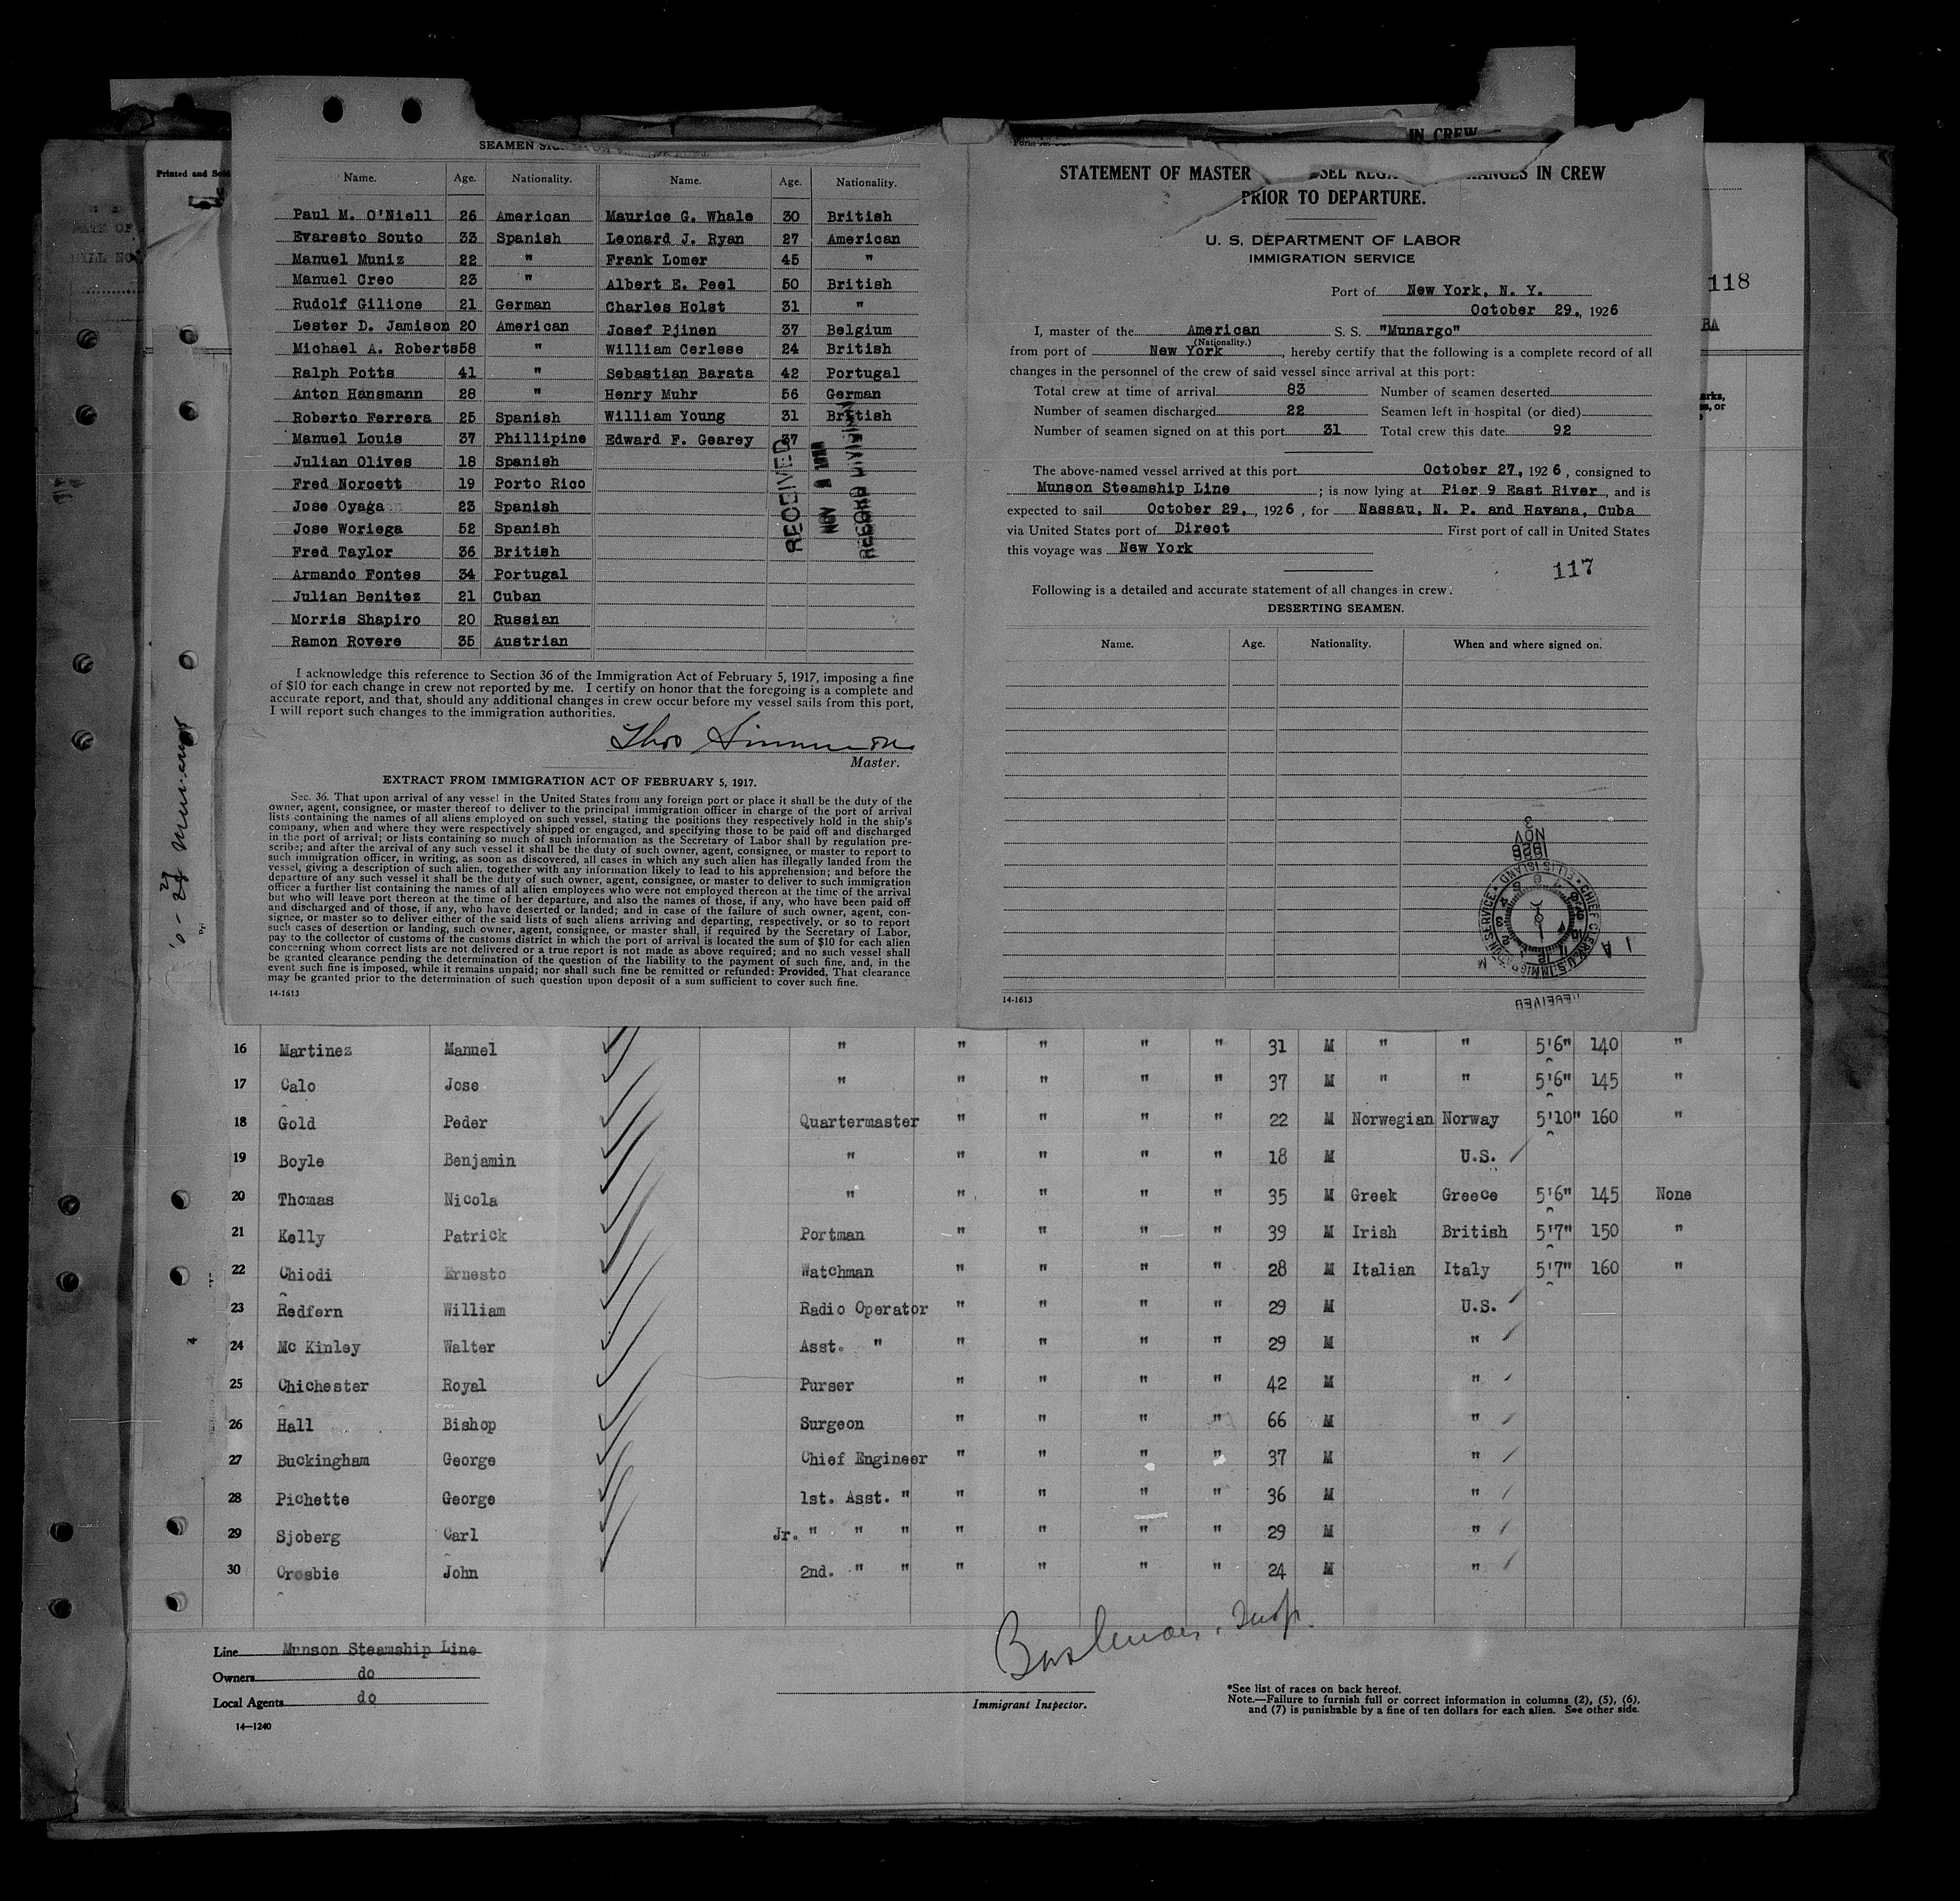 Printed and Sold
SEAMEN SIG
Name. Age. Nationality. Name. Age. Nationality.
Paul M. O'Niell 26 American Maurice G. Whale 30 British
Evaresto Souto 33 Spanish Leonard J. Ryan 27 American
Manuel Muniz 22 " Frank Lomer 45 "
Manuel Creo 23 " Albert E. Peel 50 British
Rudolf Gilione 21 German Charles Holst 31 "
Lester D. Jamison 20 American Josef Pjinen 37 Belgium
Michael A. Roberts 58 " William Cerlese 24 British
Ralph Potts 41 " Sebastian Barata 42 Portugal
Anton Hansmann 28 " Henry Muhr 56 German
Roberto Ferrera 25 Spanish William Young 31 British
Manuel Louis 37 Phillipine Edward F. Gearey 37
Julian Olives 18 Spanish
Fred Norcett 19 Porto Rico
Jose Oyaga 23 Spanish
Jose Woriega 52 Spanish
Fred Taylor 36 British
Armando Fontes 34 Portugal
Julian Benitez 21 Cuban
Morris Shapiro 20 Russian
Ramon Rovere 35 Austrian
RECEIVED
NOV
RECORD DIVISION
I acknowledge this reference to Section 36 of the Immigration Act of February 5, 1917, imposing a fine
of $10 for each change in crew not reported by me. I certify on honor that the foregoing is a complete and
accurate report, and that, should any additional changes in crew occur before my vessel sails from this port,
I will report such changes to the immigration authorities.
Thos Simmons
Master.
EXTRACT FROM IMMIGRATION ACT OF FEBRUARY 5, 1917.
Sec. 36. That upon arrival of any vessel in the United States from any foreign port or place it shall be the duty of the
owner, agent, consignee, or master thereof to deliver to the principal immigration officer in charge of the port of arrival
lists containing the names of all aliens employed on such vessel, stating the positions they respectively hold in the ship's
company, when and where they were respectively shipped or engaged, and specifying those to be paid off and discharged
in the port of arrival; or lists containing so much of such information as the Secretary of Labor shall by regulation pre-
scribe; and after the arrival of any such vessel it shall be the duty of such owner, agent, consignee, or master to report to
such immigration officer, in writing, as soon as discovered, all cases in which any such alien has illegally landed from the
vessel, giving a description of such alien, together with any information likely to lead to his apprehension; and before the
departure of any such vessel it shall be the duty of such owner, agent, consignee, or master to deliver to such immigration
officer a further list containing the names of all alien employees who were not employed thereon at the time of the arrival
but who will leave port thereon at the time of her departure, and also the names of those, if any, who have been paid off
and discharged and of those, if any, who have deserted or landed; and in case of the failure of such owner, agent, con-
signee, or master so to deliver either of the said lists of such aliens arriving and departing, respectively, or so to report
such cases of desertion or landing, such owner, agent, consignee, or master shall, if required by the Secretary of Labor,
pay to the collector of customs of the customs district in which the port of arrival is located the sum of $10 for each alien
concerning whom correct lists are not delivered or a true report is not made as above required; and no such vessel shall
be granted clearance pending the determination of the question of the liability to the payment of such fine, and, in the
event such fine is imposed, while it remains unpaid; nor shall such fine be remitted or refunded: Provided, That clearance
may be granted prior to the determination of such question upon deposit of a sum sufficient to cover such fine.
14-1613
IN CREW
STATEMENT OF MASTER SSEL REGA HANGES IN CREW
PRIOR TO DEPARTURE.
U. S. DEPARTMENT OF LABOR
IMMIGRATION SERVICE
Port of New York, N. Y.
October 29., 1926
I, master of the American S. S. "Munargo"
(Nationality.)
from port of New York, hereby certify that the following is a complete record of all
changes in the personnel of the crew of said vessel since arrival at this port:
Total crew at time of arrival 83 Number of seamen deserted
Number of seamen discharged 22 Seamen left in hospital (or died)
Number of seamen signed on at this port 31 Total crew this date 92
The above-named vessel arrived at this port October 27, 1926, consigned to
Munson Steamship Line ; is now lying at Pier 9 East River, and is
expected to sail October 29., 1926, for Nassau, N. P. and Havana, Cuba
via United States port of Direct First port of call in United States
this voyage was New York
117
Following is a detailed and accurate statement of all changes in crew:
DESERTING SEAMEN.
Name. Age. Nationality. When and where signed on.
1926
NOV
3
CHIEF CLERK U.S. IMMIGRATION SERVICE • ELLIS ISLAND •
RECEIVED
14-1613
118
BA
16 Martinez Manuel " " " " " 31 M " " 5'6" 140 "
17 Calo Jose " " " " " 37 M " " 5'6" 145 "
18 Gold Peder Quartermaster " " " " 22 M Norwegian Norway 5'10" 160 "
19 Boyle Benjamin " " " " " 18 M U.S.
20 Thomas Nicola " " " " " 35 M Greek Greece 5'6" 145 None
21 Kelly Patrick Portman " " " " 39 M Irish British 5'7" 150 "
22 Chiodi Ernesto Watchman " " " " 28 M Italian Italy 5'7" 160 "
23 Redfern William Radio Operator " " " " 29 M U.S.
24 Mc Kinley Walter Asst. " " " " " 29 M "
25 Chichester Royal Purser " " " " 42 M "
26 Hall Bishop Surgeon " " " " 66 M "
27 Buckingham George Chief Engineer " " " " 37 M "
28 Pichette George 1st. Asst. " " " " " 36 M "
29 Sjoberg Carl Jr. " " " " " " " 29 M "
30 Crosbie John 2nd. " " " " " " 24 M "
Line Munson Steamship Line
Owners do
Local Agents do
14—1240
Immigrant Inspector.
*See list of races on back hereof.
Note.—Failure to furnish full or correct information in columns (2), (5), (6),
and (7) is punishable by a fine of ten dollars for each alien. See other side.